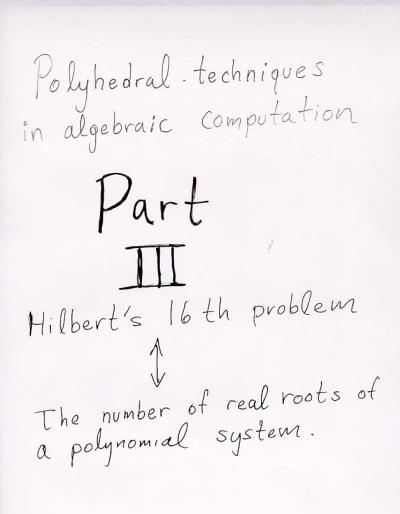 Polyhedral techniques
in algebraic computation
Part
III
Hilbert's 16 th problem
The number of real roots of
a polynomial system.